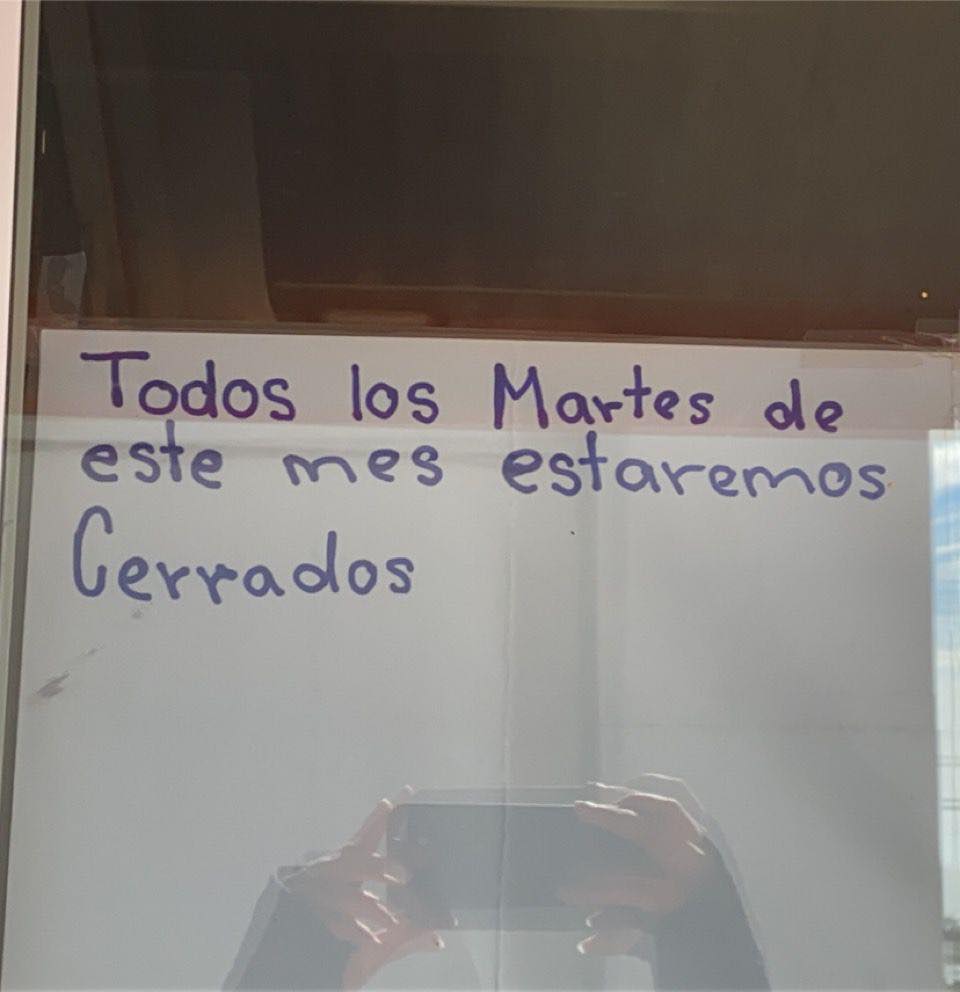 Todos los Martes de
este mes estaremos
Cerrados